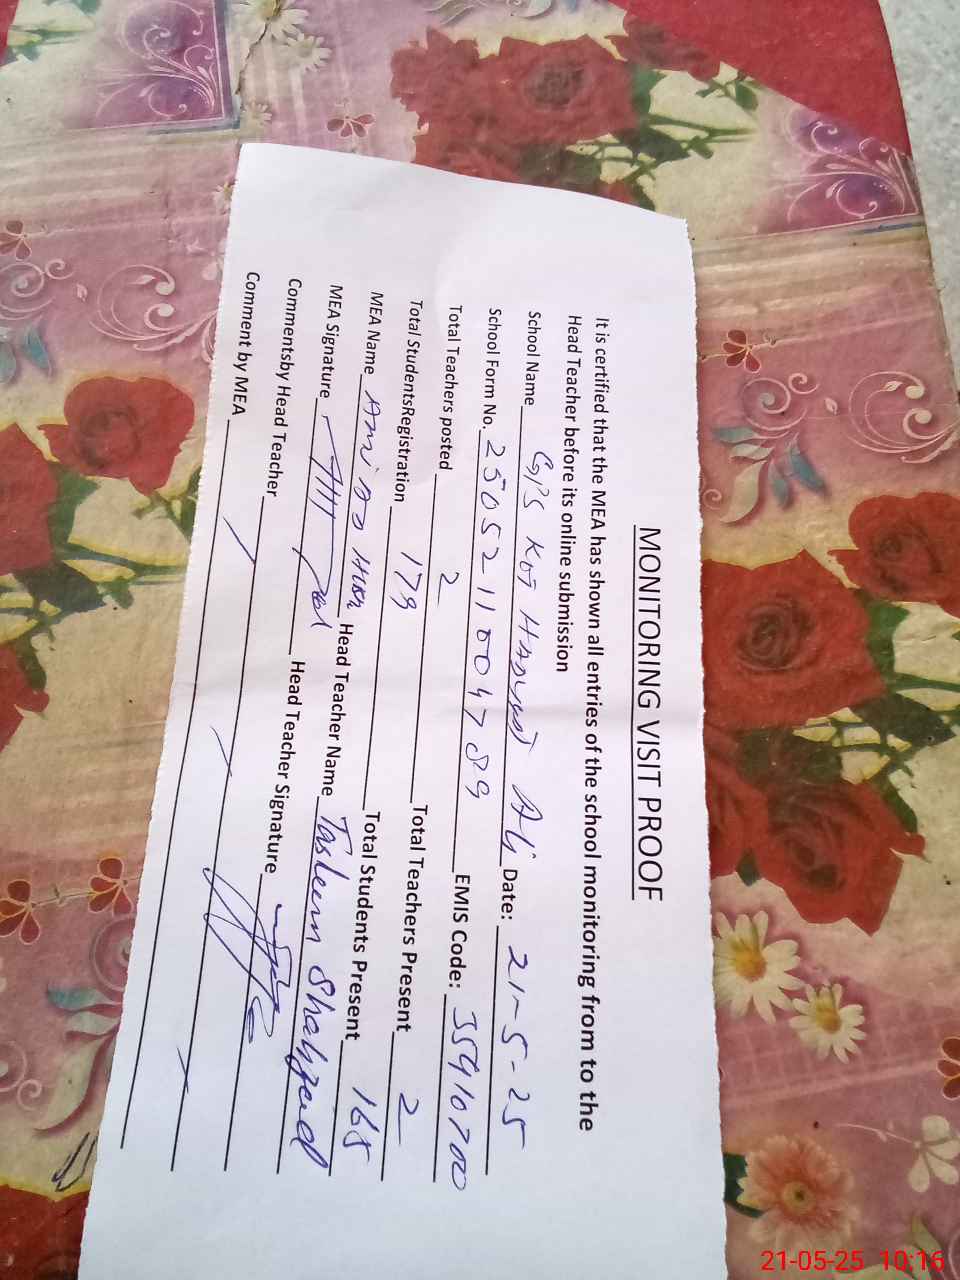 MONITORING VISIT PROOF
It is certified that the MEA has shown all entries of the school monitoring from to the
Head Teacher before its online submission
School Name GPS KOT Ali Date: 21-5-25
School Form No. 2505211004789 EMIS Code: 35910700
Total Teachers posted 2 Total Teachers Present 2
Total StudentsRegistration 179 Total Students Present 165
MEA Name Head Teacher Name Tasleem Shahzad
MEA Signature Head Teacher Signature
Commentsby Head Teacher
Comment by MEA
21-05-25 10:16